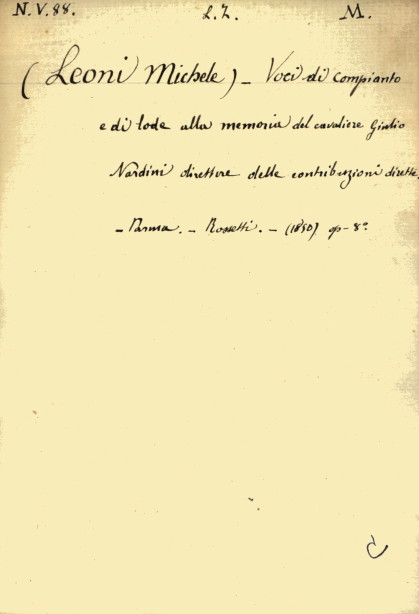 N.V.88. L.Z. M.
(Leoni Michele) - Voci di compianto
e di lode alla memoria del cavaliere Giulio
Nardini direttore delle contribuzioni dirette.
- Parma. - Rossetti. - (1850) op - 8º.